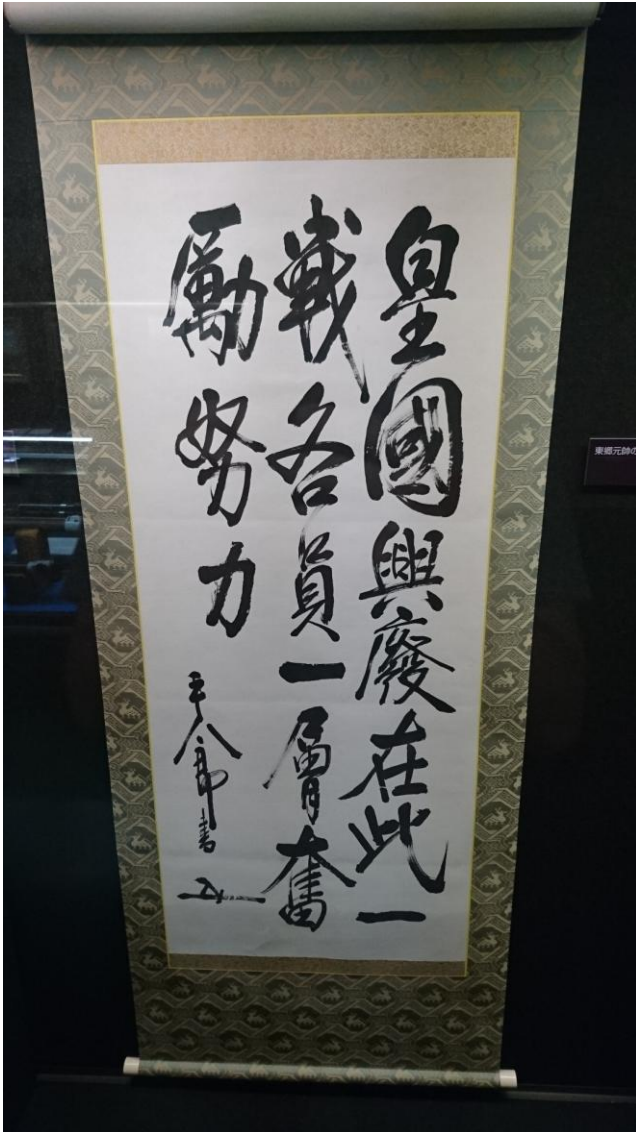 皇國興廢在此一
戰各員一層奮
勵努力
平八郎書
東郷元帥の